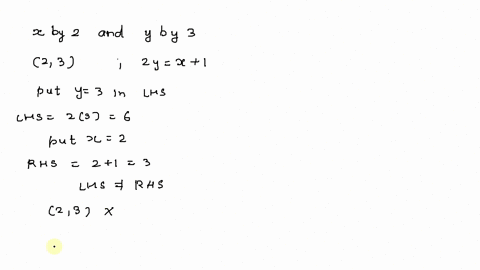 x by 2 and y by 3
(2,3) ; 2y = x + 1
put y = 3 in LHS
LHS = 2(3) = 6
put x = 2
RHS = 2 + 1 = 3
LHS ≠ RHS
(2,3) x